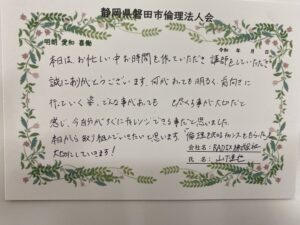 静岡県磐田市倫理法人会
明朗 愛和 喜働
令和 年 月 日
本日は、お忙しい中お時間を作っていただき 講師をしていただき
誠にありがとうございます。何があっても明るく、前向きに
行っていく姿、どんな事があっても とびきる事が大切だと
感じ、今自分がすぐにチャレンジできる事だと思いました。
本日から取り組んでいきたいと思います。倫理を学べるチャンスをもらった
大切にしていきます!
会社名:RADIX株式会社
氏 名:山下